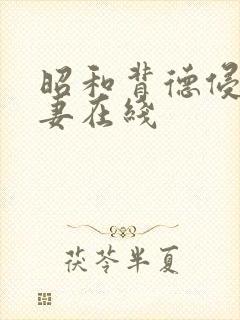 昭和背德侵
妻在线
茯苓半夏